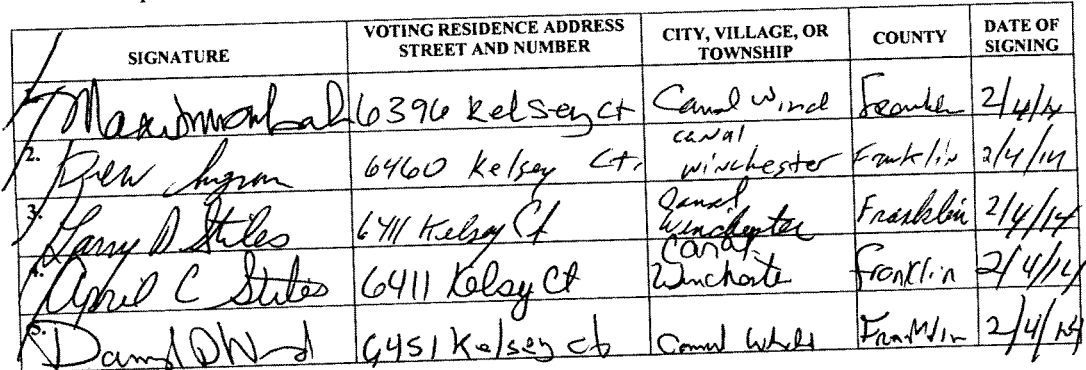 SIGNATURE VOTING RESIDENCE ADDRESS STREET AND NUMBER CITY, VILLAGE, OR TOWNSHIP COUNTY DATE OF SIGNING
6396 Kelsey Ct Canal Winch 2/4/14
2. Drew 6460 Kelsey Ct. canal winchester Franklin 2/4/14
3. Larry D Stiles 6411 Kelsey Ct Canal Winchester Franklin 2/4/14
4. April C Stiles 6411 Kelsy Ct Canal Franklin 2/4/14
5. 6451 Kelsey ct Franklin 2/4/14